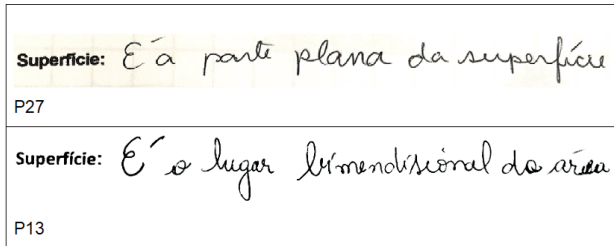 Superfície: É a parte plana da superfície
P27
Superfície: É o lugar bimendisional da área
P13